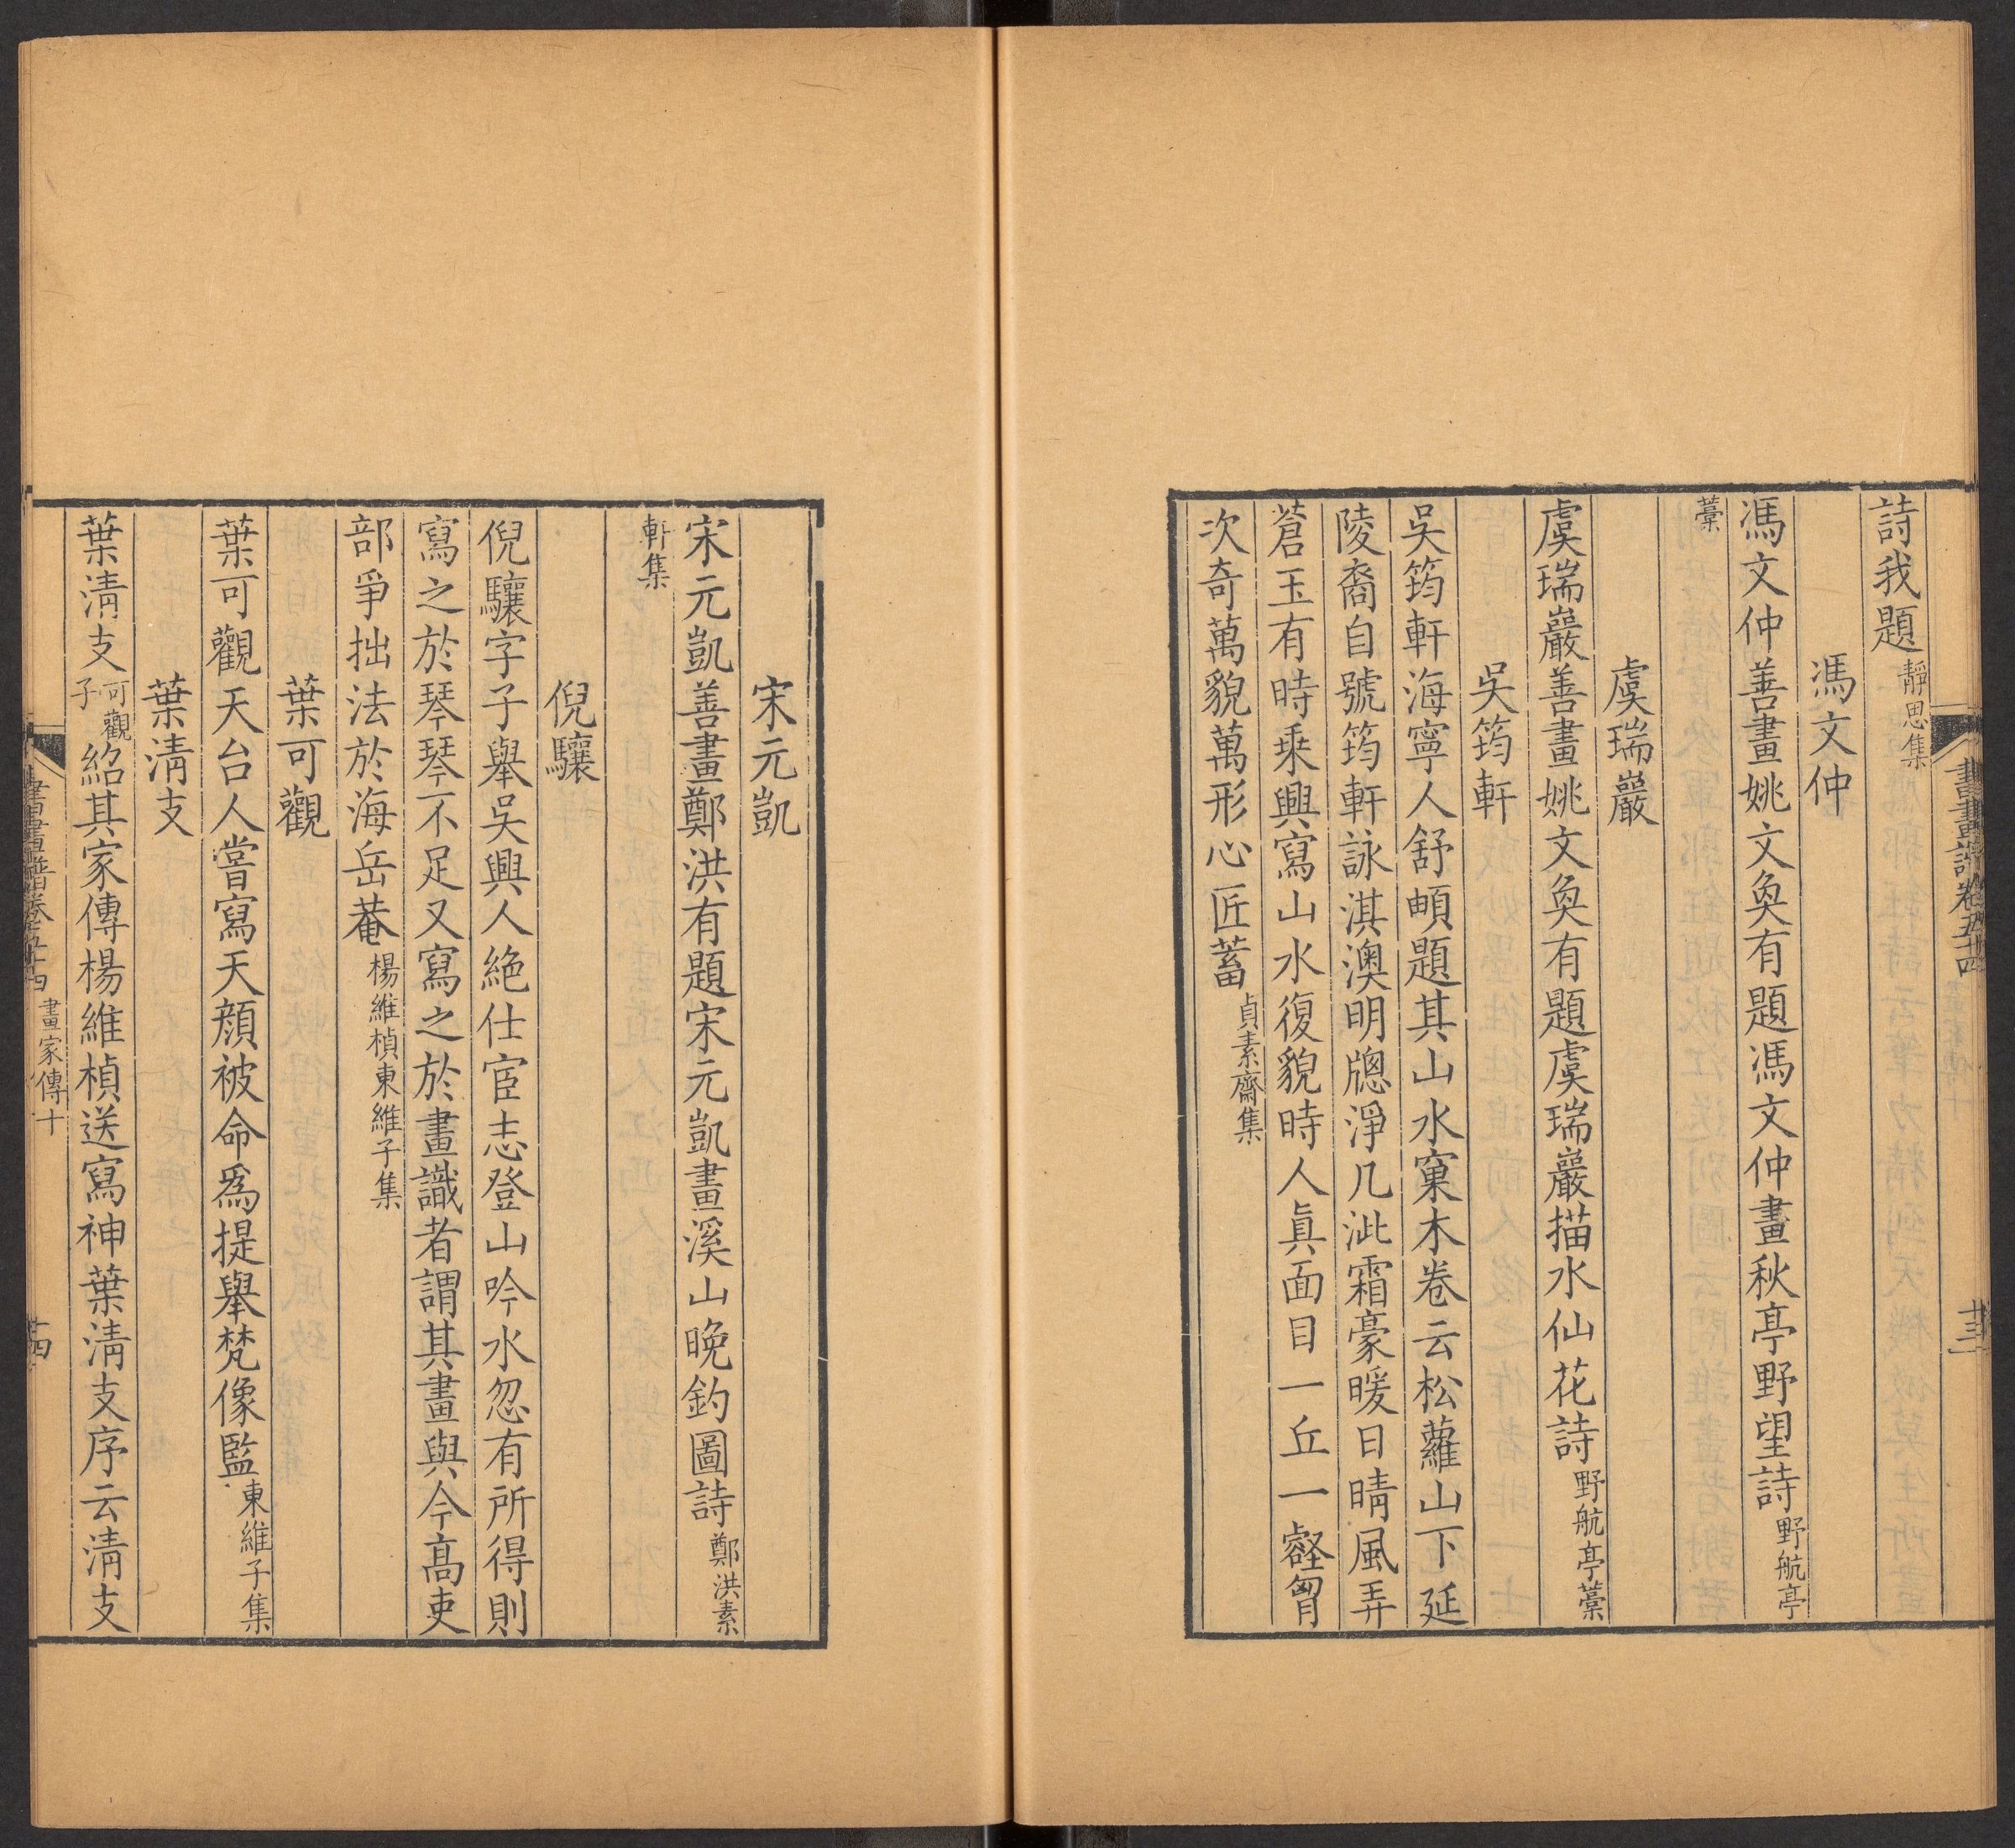 詩我題靜思集
馮文仲
馮文仲善畫姚文奐有題馮文仲畫秋亭野望詩野航亭
藁
虞瑞巖
虞瑞巖善畫姚文奐有題虞瑞巖描水仙花詩野航亭藁
吳筠軒
吳筠軒海寧人舒頔題其山水窠木卷云松蘿山下延
陵裔自號筠軒詠淇澳明牕淨几泚霜豪暖日晴風弄
蒼玉有時乘興寫山水復貌時人眞面目一丘一壑胷
次奇萬貌萬形心匠蓄貞素齋集
宋元凱
宋元凱善畫鄭洪有題宋元凱畫溪山晚釣圖詩鄭洪素
軒集
倪驤
倪驤字子舉吳興人絕仕宦志登山吟水忽有所得則
寫之於琴琴不足又寫之於畫識者謂其畫與今高吏
部爭拙法於海岳菴楊維楨東維子集
葉可觀
葉可觀天台人嘗寫天顏被命爲提舉梵像監東維子集
葉清支
葉清支可觀子紹其家傳楊維楨送寫神葉清支序云清支
書畫譜卷五十四 畫家傳十 十四